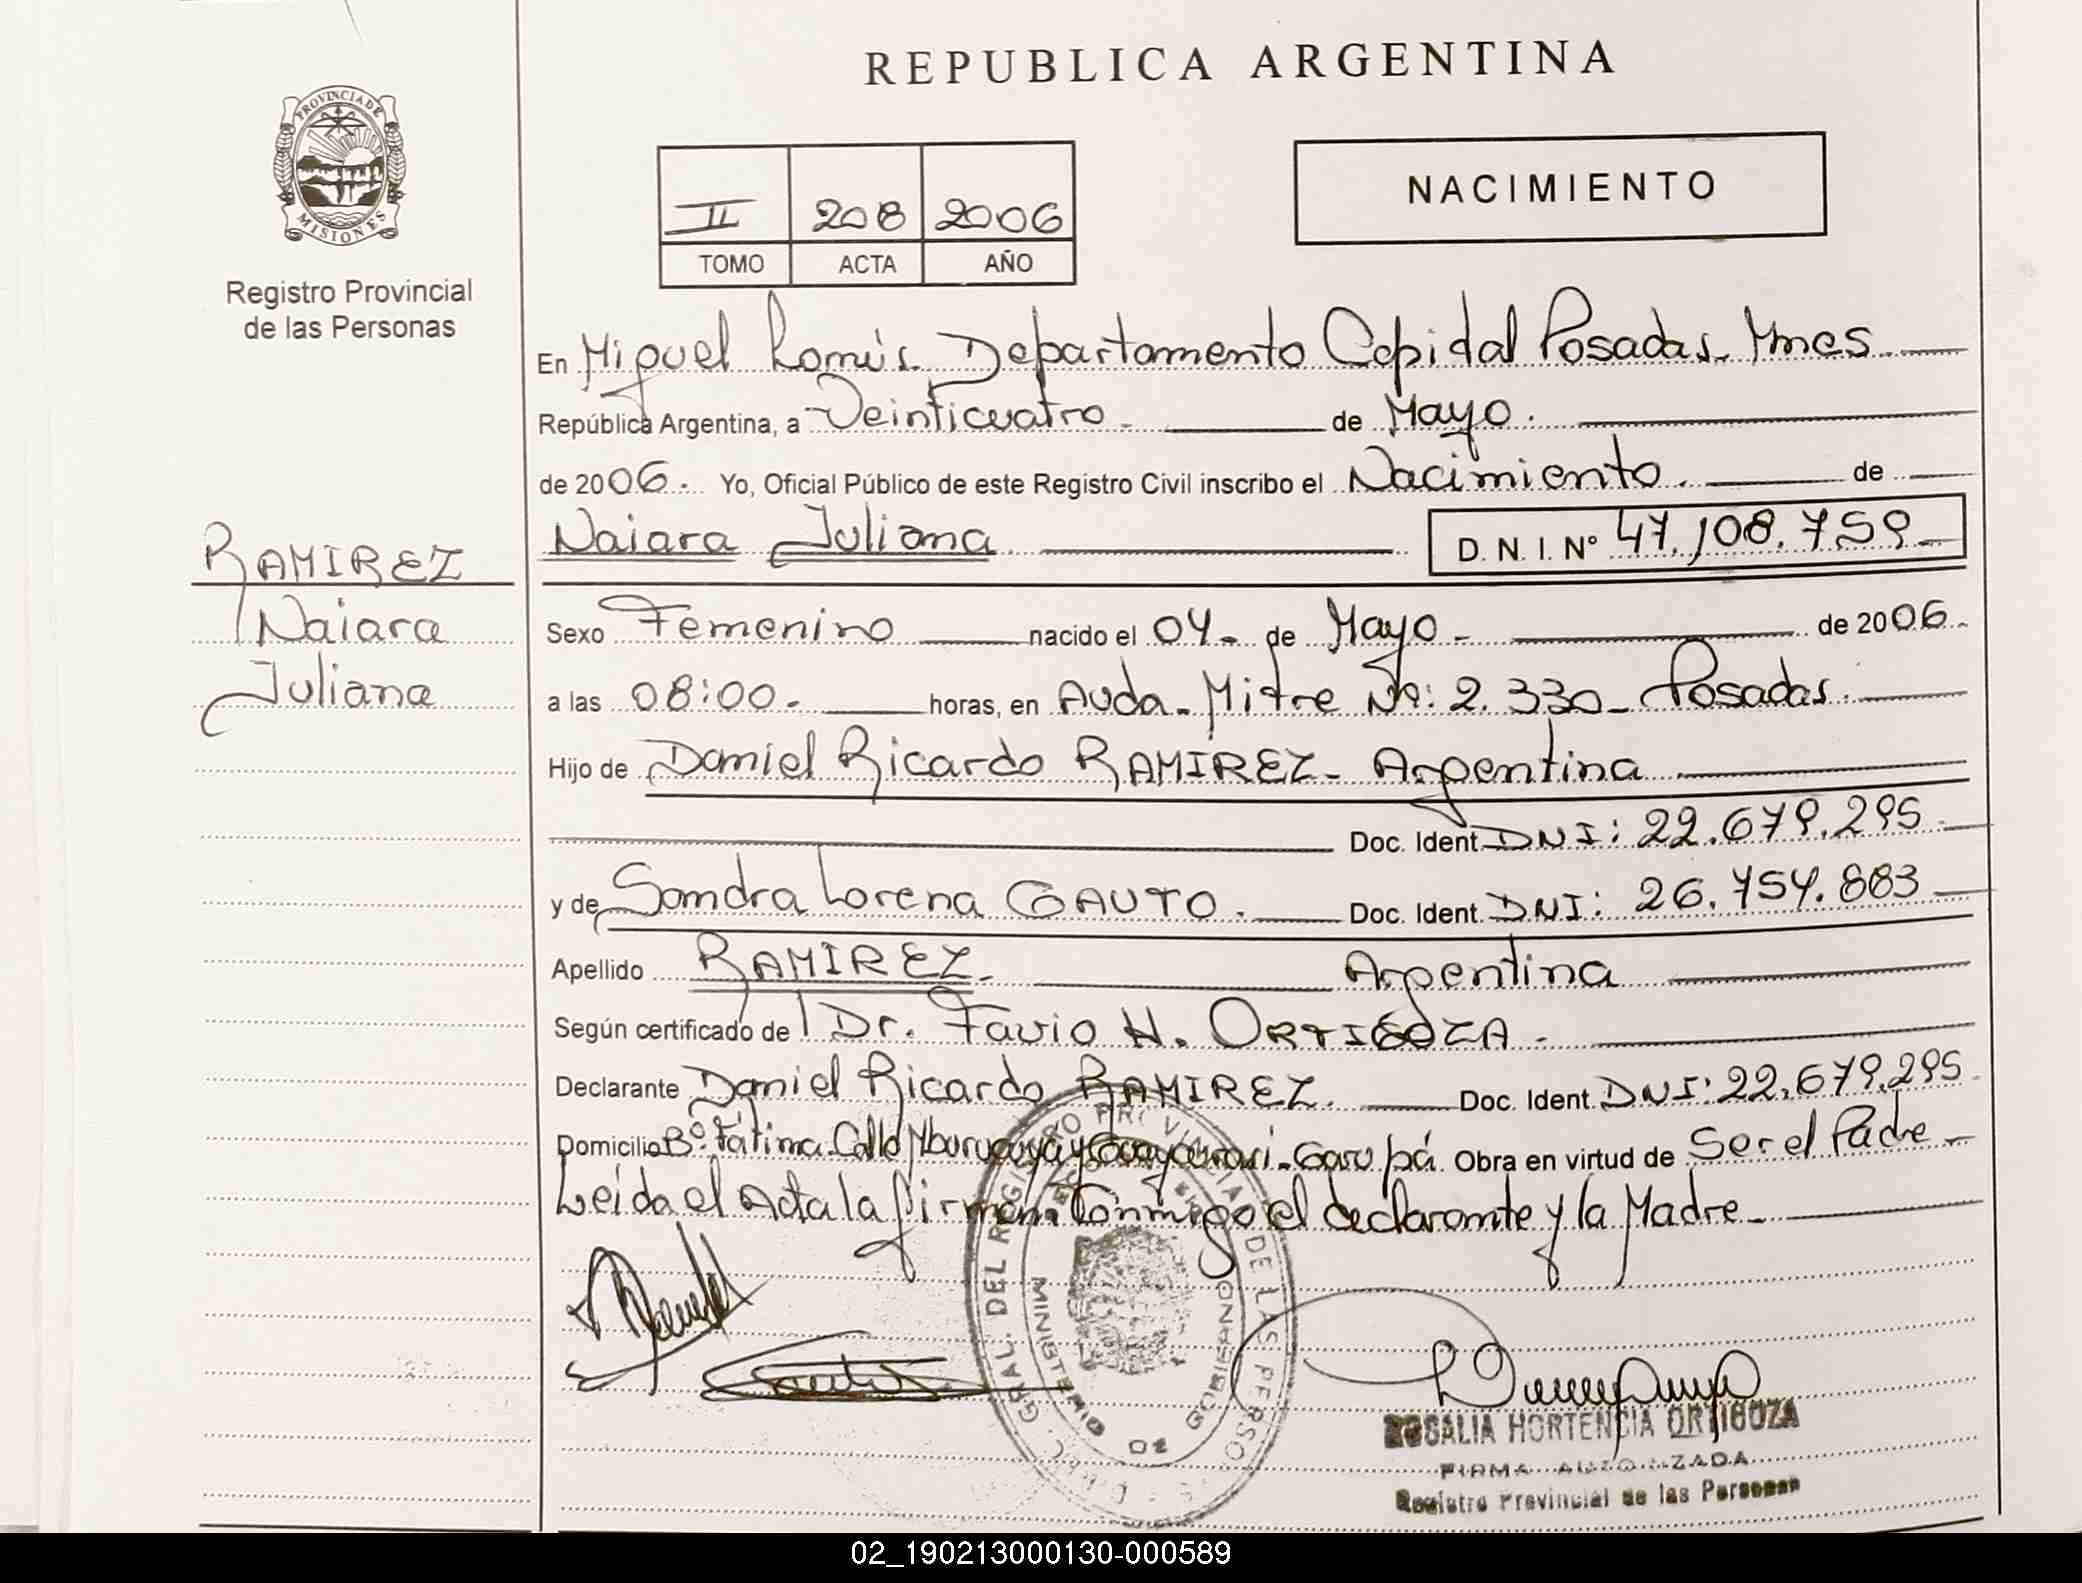 REPUBLICA ARGENTINA
PROVINCIA DE
MISIONES
Registro Provincial
de las Personas
II 208 2006
TOMO ACTA AÑO
NACIMIENTO
En Miguel Lanús. Departamento Capital Posadas. Mnes
República Argentina, a Veinticuatro. de Mayo.
de 2006. Yo, Oficial Público de este Registro Civil inscribo el Nacimiento. de
Naiara Juliana D. N. I. Nº 47.108.759
RAMIREZ
Naiara
Juliana
Sexo Femenino nacido el 04 de Mayo de 2006.
a las 08:00. horas, en Avda. Mitre Nº: 2.330 Posadas.
Hijo de Daniel Ricardo RAMIREZ Argentina
Doc. Ident. DNI: 22.679.295
y de Sandra Lorena GAUTO. Doc. Ident. DNI: 26.754.883
Apellido RAMIREZ Argentina
Según certificado de Dr. Favio H. ORTIGOZA
Declarante Daniel Ricardo RAMIREZ. Doc. Ident. DNI: 22.679.295
Domicilio Bº. Fátima Calle y Garupá. Obra en virtud de Ser el Padre
Leída el Acta la firman Conmigo el declarante y la Madre
GRAL. DEL REGISTRO PROVINCIAL DE LAS PERSO
MINISTERIO DE GOBIERNO
ROSALIA HORTENCIA ORTIGOZA
FIRMA AUTORIZADA
Registro Provincial de las Personas
02_190213000130-000589